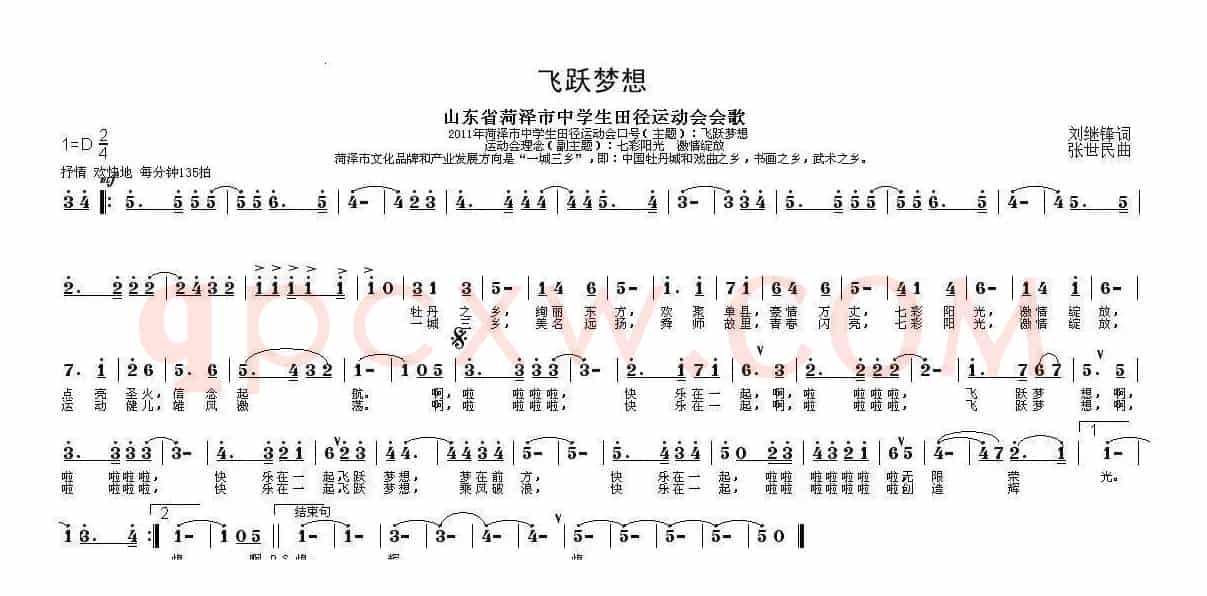 飞跃梦想
山东省菏泽市中学生田径运动会会歌
1=D 2/4
2011年菏泽市中学生田径运动会口号(主题):飞跃梦想
刘继锋词
运动会理念(副主题):七彩阳光 激情绽放
张世民曲
菏泽市文化品牌和产业发展方向是“一城三乡”,即:中国牡丹城和戏曲之乡,书画之乡,武术之乡。
抒情 欢快地 每分钟135拍
mf
3 4 5. 5 5 5 5 5 6. 5 4- 4 2 3 4. 4 4 4 4 4 5. 4 3- 3 3 4 5. 5 5 5 5 5 6. 5 4- 4 5. 5
2. 2 2 2 2 4 3 2 1 1 1 1 1 1 0 3 1 3 5- 1 4 6 5- 1. 1 7 1 6 4 6 5- 4 1 4 6- 1 4 6-
牡丹 之 乡, 绚丽 东 方, 欢 聚 单县,豪情 万 丈, 七彩 阳 光, 激情 绽 放,
一城 三 乡, 美名 远 扬, 舜 师 故里,青春 闪 亮, 七彩 阳 光, 激情 绽 放,
7. 1 2 6 5. 6 5. 4 3 2 1- 1 0 5 3. 3 3 3 3- 2. 1 7 1 6. 3 2. 2 2 2 2- 1. 7 6 7 5. 5
点 亮 圣火,信 念 起 航。 啊, 啦 啦啦 啦, 快 乐在一 起,啊, 啦 啦啦 啦, 飞 跃梦 想, 啊,
运 动 健儿,雄 风 激 荡。 啊, 啦 啦啦 啦, 快 乐在一 起,啊, 啦 啦啦 啦, 飞 跃梦 想, 啊,
3. 3 3 3 3- 4. 3 2 1 6 2 3 4. 3 4 4 3 4 5- 5- 4. 3 4 5 0 2 3 4 3 2 3 4 3 2 1 6 5 4- 4 7 2. 1 1-
啦 啦啦 啦, 快 乐在一 起,飞跃 梦 想, 梦在前 方, 快 乐在一 起, 啦啦 啦啦啦 啦啦啦啦无 限 荣 光。
啦 啦啦 啦, 快 乐在一 起,飞跃 梦 想, 乘风破 浪, 快 乐在一 起, 啦啦 啦啦啦 啦啦啦啦创 造 辉
1
2
结束句
1 3. 4 1- 1 0 5 1- 1- 3- 3- 4- 5- 5- 5- 5- 5 0
煌 啊 D.S 煌 辉 煌
qpcxw.COM